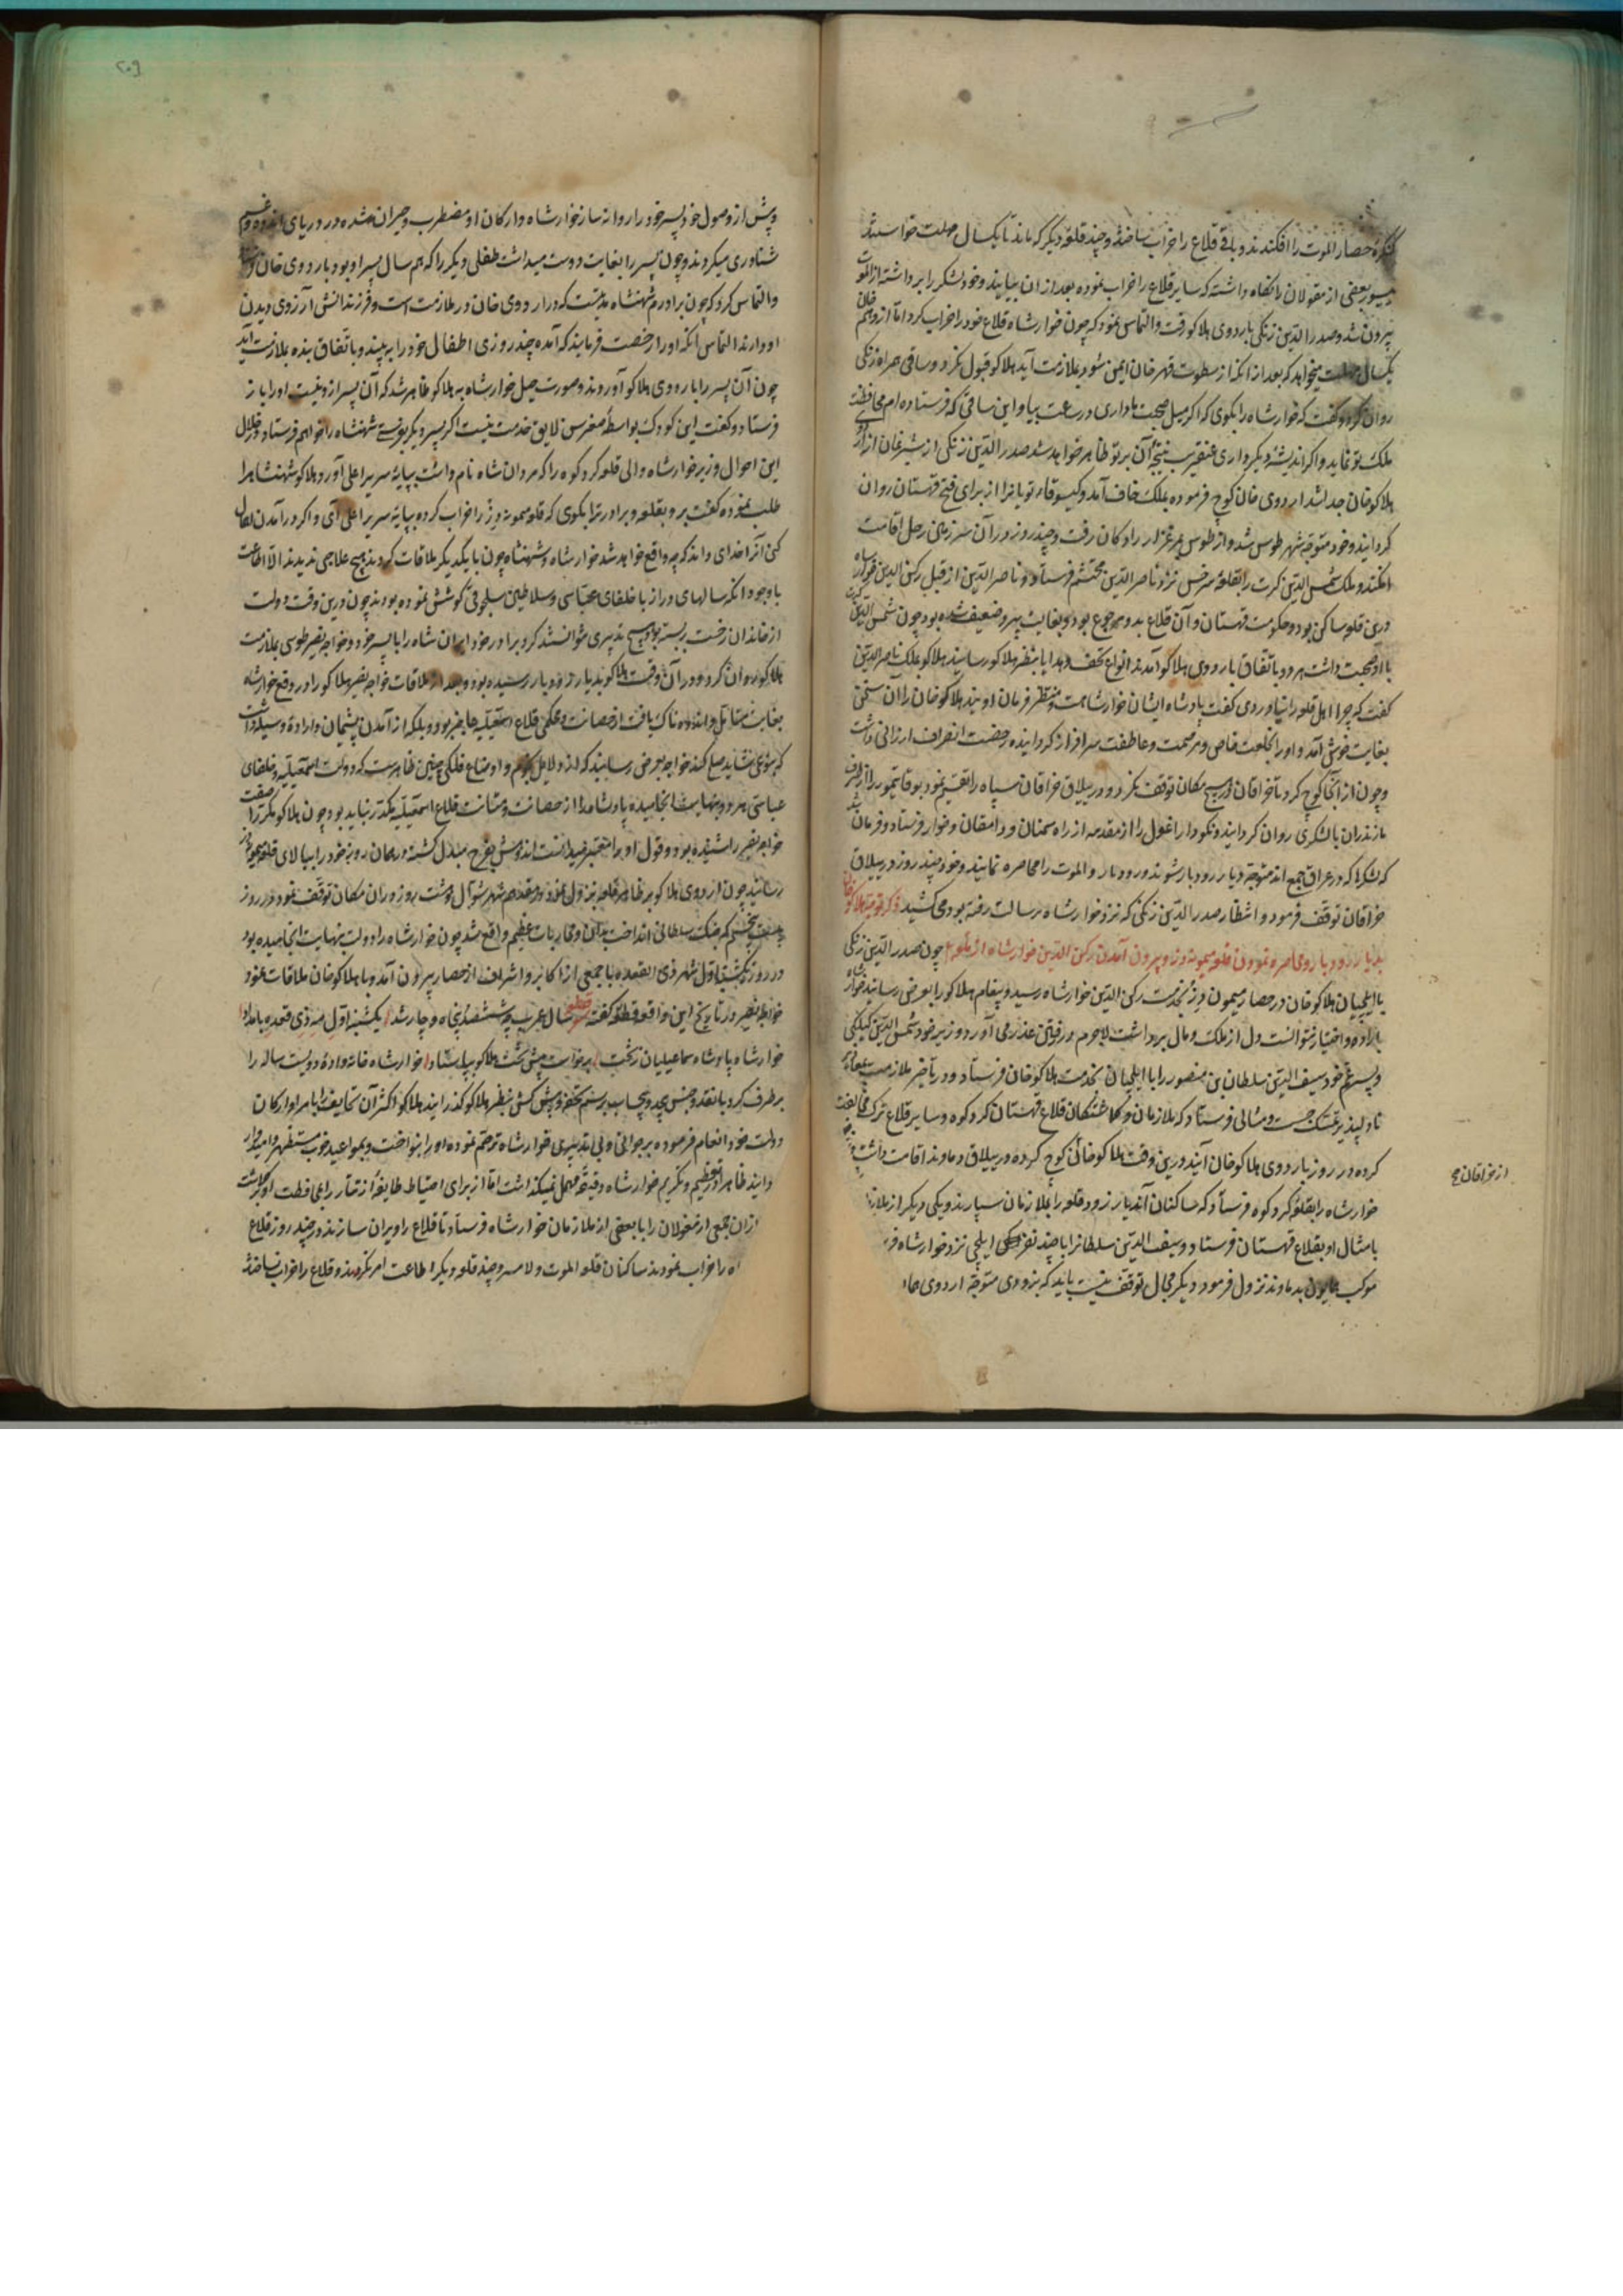 کنکره حصار الموت را افکندند و باقی قلاع را خراب نساختند و چند قلعه دیکر که ماند تا یکسال مهلت خواستند
بعضی از مغولان را نکاه داشته که سایر قلاع را خراب نموده بعد از ان بیایند و خود لشکر را برداشته از الموت
بیرون شد و صدر الدین زنکی باردوی هلاکو رفت و التماس نمود که چون خوارشاه قلاع خود را خراب کرد اما از وهم خان
یکسال مهلت میخواهد که بعد از انکه از سطوت قهر خان ایمن شود بملازمت آید هلاکو قبول نکرد و ساقی همراه زنکی
روان کرد و کفت که خوارشاه را بکوی که اکر میل صحبت ما داری در ساعت بیا و این ساقی که فرستاده ام محافظت
ملک تو نماید و اکر اندیشه دیکر داری عنقریب نتیجه آن بر تو ظاهر خواهد شد صدر الدین زنکی از شبرغان از اردوی
هلاکو خان جدا شد اردوی خان کوچ فرموده بملک خاف آمد و کیسوقا نویانرا از برای فتح قهستان روان
کردانید و خود متوجه شهر طوس شد و از طوس بمرغزار رادکان رفت و چند روز در آن سرزمین رحل اقامت
افکند و ملک شمس الدین کرت را بقلعه سرخس نزد ناصر الدین محتشم فرستاد و ناصر الدین از قبل رکن الدین خوارشاه
درین قلعه ساکن بود و حکومت قهستان و آن قلاع بدو مرجوع بود و بغایت پیر و ضعیف شده بود چون شمس الدین کرت
با او محبت داشت هر دو باتفاق باردوی هلاکو آمدند انواع تحف و هدایا بنظر هلاکو رسانید هلاکو بملک ناصر الدین
کفت که چرا اهل قلعه را نیاوردی کفت پادشاه ایشان خوارشاهست و منتظر فرمان اویند هلاکو خان را ان سخن
بغایت خوش آمد و او را بخلعت خاص و مرحمت و عاطفت سرافراز کردانیده رخصت انصراف ارزانی داشت
و چون از آنجا کوچ کرد تا خرقان در هیچ مکان توقف نکرد و در ییلاق خرقان سپاه را تقسیم نمود بوقا تیمور را از طرف
مازندران با لشکری روان کردانید و نکودار اغول را از مقدمه از راه سمنان و دامقان و خوار فرستاد و فرمان شد
که لشکرها که در عراق جمع اند متوجه دیار رودبار شوند و رودبار و الموت را محاصره نمایند و خود چند روز در ییلاق
خرقان توقف فرمود و انتظار صدر الدین زنکی که نزد خوارشاه برسالت رفته بود می کشید ذکر توجه هلاکو خان
بدیار رودبار و محاصره نمودن قلعه میمون دز و بیرون آمدن رکن الدین خوارشاه از قلعه چون صدر الدین زنکی
با ایلچیان هلاکو خان در حصار میمون دز بخدمت رکن الدین خوارشاه رسید و پیغام هلاکو را بعرض رسانید خوارشاه
باراده و اختیار نتوانست دل از ملک و مال برداشت لاجرم در رفتن عذر می آورد وزیر خود شمس الدین کیلکی
و پسر عم خود سیف الدین سلطان بن منصور را با ایلچیان بخدمت هلاکو خان فرستاد و در تأخیر ملازمت بمعاذیر
نادلپذیر تمسک جست و مثالی فرستاد که ملازمان و کماشتکان قلاع قهستان کردکوه و سایر قلاع ترک مخالفت
کرده در روز باردوی هلاکو خان آیند درین وقت هلاکو خان کوچ کرده در ییلاق دماوند اقامت داشت
خوارشاه را بقلعه کردکوه فرستاد که ساکنان آندیار زود قلعه را بملازمان سپارند و یکی دیکر از ملازمان
با مثال او بقلاع قهستان فرستاد و سیف الدین سلطانرا با چند نفر ایلچی نزد خوارشاه
موکب همایون بدماوند نزول فرمود دیکر مجال توقف نیست باید که بزودی متوجه اردوی
از خرقان
۲۰۹
و پیش از وصول خود پسر خود را روانه سازد خوارشاه و ارکان او مضطرب و حیران شده در دریای اندوه و غم
شناوری میکردند و چون پسر را بغایت دوست میداشت طفلی دیکر را که هم سال پسر او بود باردوی خان
و التماس کرد که چون برادرم شهنشاه مدتست که در اردوی خان در ملازمت است و فرزندانش آرزوی دیدن
او دارند التماس آنکه او را رخصت فرمایند که آمده چند روزی اطفال خود را ببیند و باتفاق بنده بملازمت آید
چون آن پسر را باردوی هلاکو آوردند و صورت حیل خوارشاه به هلاکو ظاهر شد که آن پسر ازو نیست او را باز
فرستاد و کفت این کودک بواسطه صغر سن لایق خدمت نیست اکر پسر دیکر بفرستی شهنشاه را خواهم فرستاد و در خلال
این احوال وزیر خوارشاه والی قلعه کردکوه را که مردان شاه نام داشت بپایه سریر اعلی آورد هلاکو شهنشاه را
طلب نموده کفت برو بقلعه و برادرت را بکوی که قلعه میمون دز را خراب کرده بپایه سریر اعلی آی و اکر در آمدن اهمال
کنی آنرا خدای داند که چه واقع خواهد شد خوارشاه و شهنشاه چون با یکدیکر ملاقات کردند هیچ علاجی ندیدند الا اطاعت
با وجود انکه سالهای دراز با خلفای عباسی و سلاطین سلجوقی کوشش نموده بودند چون درین وقت دولت
از خاندان رخت بربسته بود هیچ تدبیری نتوانستند کرد برادر خود ایران شاه را با پسر خود و خواجه نصیر طوسی بملازمت
هلاکو روان کرد و در آن وقت هلاکو بدیار رودبار رسیده بود و بعد از ملاقات خواجه نصیر هلاکو را در دفع خوارشاه
بغایت متأمل و اندوهناک یافت از حصانت و محکمی قلاع اسمعیلیه حاضر بود و بلکه از آمدن پشیمان و اراده
که بنوعی شاید صلح کند خواجه بعرض رسانید که از دلایل نجوم و اوضاع فلکی چنین ظاهرست که دولت اسمعیلیه و خلفای
عباسی هر دو بنهایت انجامیده پادشاه را از حصانت و متانت قلاع اسمعیلیه مکدر نباید بود چون هلاکو مکرر صفت
خواجه نصیر را شنیده بود و قول او را معتبر میدانست اندوهش بفرح مبدل کشته در همان روز خود را ببالای قلعه میمون دز
رسانید چون اردوی هلاکو بر ظاهر قلعه نزول نمود و هفدهم شهر شوال روزی در ان مکان توقف نمود و در روز
کرد جنک سلطانی انداخت بدان و محاربات عظیم واقع شد چون خوارشاه را دولت بنهایت انجامیده بود
در روز یکشنبه اول شهر ذی القعده با جمعی از اکابر و اشراف از حصار بیرون آمد و با هلاکو خان ملاقات نمود
خواجه نصیر در تاریخ این واقعه قطعه کفته قطعه سال عرب چو ششصد و پنجاه و چار شد یکشنبه اول مه ذی قعده بامداد
خوارشاه پادشاه سماعیلیان ز تخت برخاست پیش تخت هلاکو بپا ستاد خوارشاه خانواده دویست ساله را
برطرف کرد با نقد و جنس بیحد و بیحساب برسم تحفه و پیش کش بنظر هلاکو کذرانید هلاکو اکثر آن تحایف را بامرا و ارکان
دولت خود انعام فرموده بر جوانی و بی تدبیری خوارشاه ترحم نموده او را بنواخت و بمواعید خوب مستظهر و امیدوار
ظاهرا در تعظیم و تکریم خوارشاه دقیقه مهمل نمیکذاشت اما از برای احتیاط طایفه از تتار را بمحافظت او برکماشت
از ان جمعی از مغولان را با بعضی از ملازمان خوارشاه فرستاد تا قلاع را ویران سازند در چند روز قلاع
را خراب نمودند ساکنان قلعه الموت و لامسر و چند قلعه دیکر اطاعت امر نکردند و قلاع را خراب نساختند